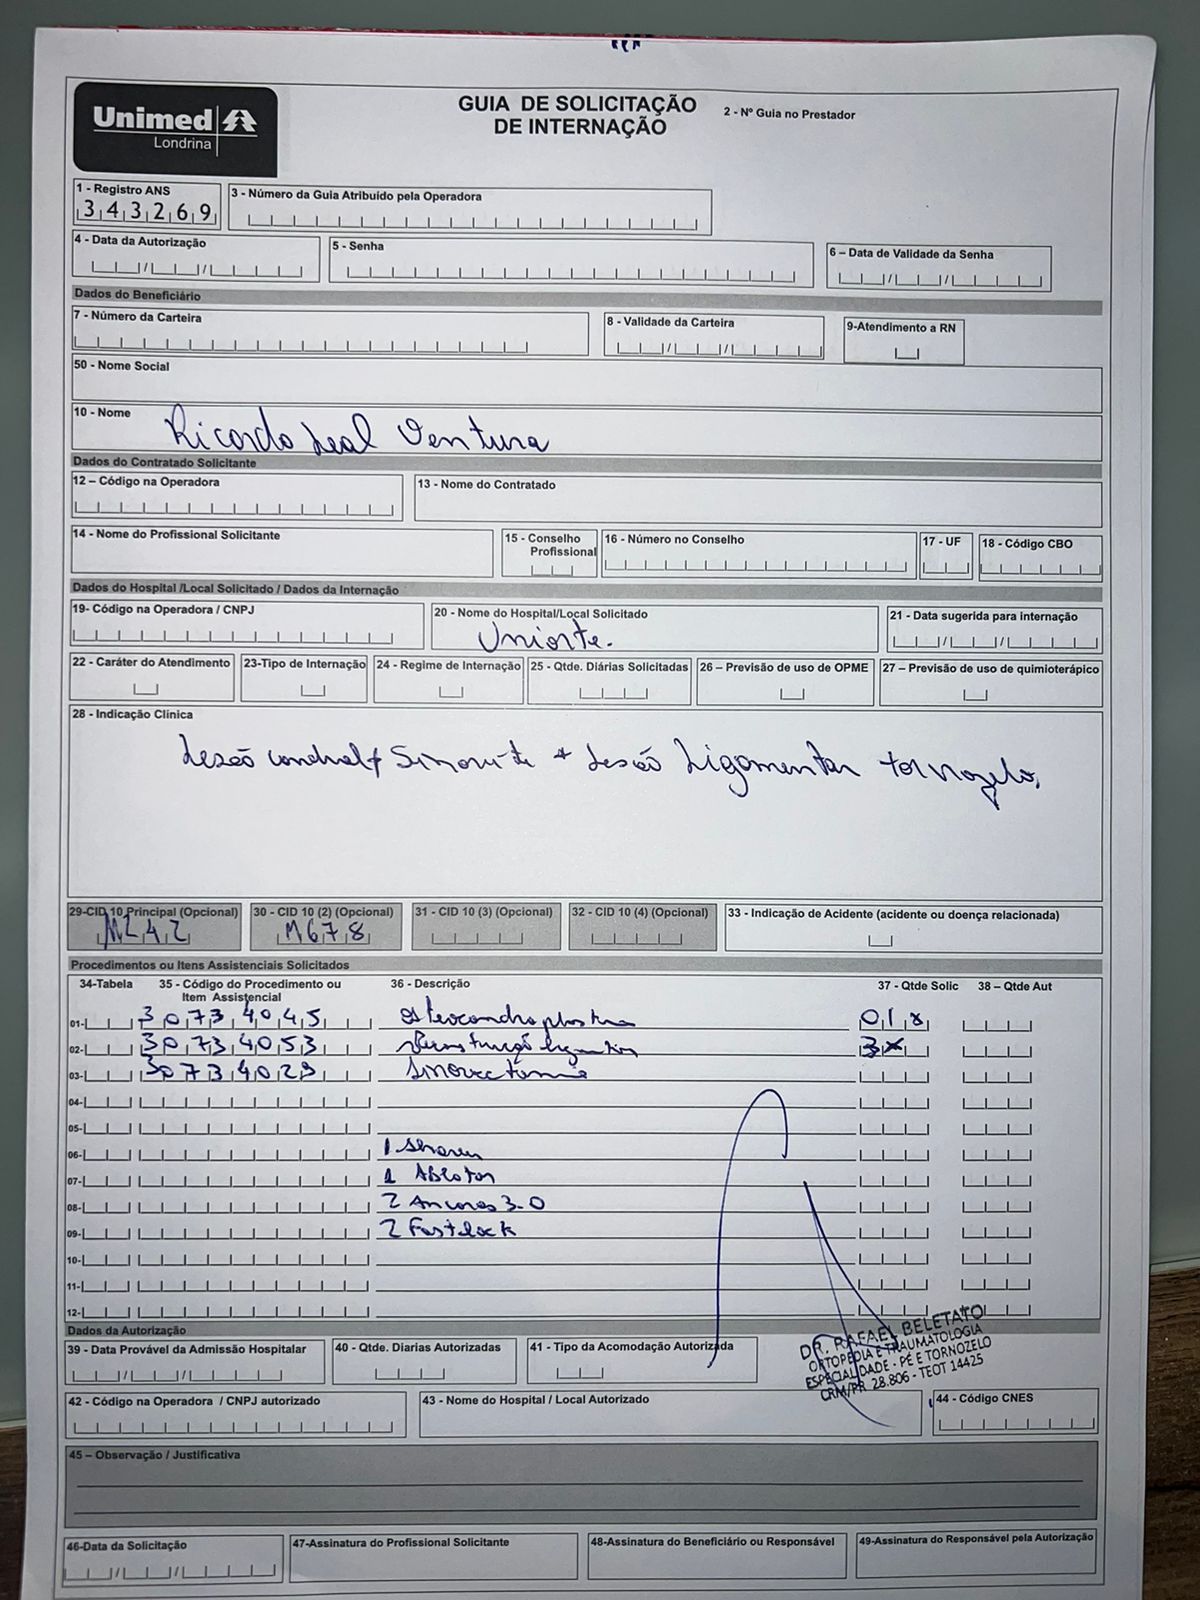 Unimed
Londrina
GUIA DE SOLICITAÇÃO
DE INTERNAÇÃO
2 - Nº Guia no Prestador
1 - Registro ANS
343269
3 - Número da Guia Atribuído pela Operadora
4 - Data da Autorização
5 - Senha
6 – Data de Validade da Senha
Dados do Beneficiário
7 - Número da Carteira
8 - Validade da Carteira
9-Atendimento a RN
50 - Nome Social
10 - Nome
Ricardo Leal Ventura
Dados do Contratado Solicitante
12 – Código na Operadora
13 - Nome do Contratado
14 - Nome do Profissional Solicitante
15 - Conselho
Profissional
16 - Número no Conselho
17 - UF
18 - Código CBO
Dados do Hospital /Local Solicitado / Dados da Internação
19- Código na Operadora / CNPJ
20 - Nome do Hospital/Local Solicitado
Uniorte.
21 - Data sugerida para internação
22 - Caráter do Atendimento
23-Tipo de Internação
24 - Regime de Internação
25 - Qtde. Diárias Solicitadas
26 – Previsão de uso de OPME
27 – Previsão de uso de quimioterápico
28 - Indicação Clínica
Lesão condral + Sinovite + Lesão Ligamentar tornozelo.
29-CID 10 Principal (Opcional)
M242
30 - CID 10 (2) (Opcional)
M678
31 - CID 10 (3) (Opcional)
32 - CID 10 (4) (Opcional)
33 - Indicação de Acidente (acidente ou doença relacionada)
Procedimentos ou Itens Assistenciais Solicitados
34-Tabela
35 - Código do Procedimento ou
Item Assistencial
36 - Descrição
37 - Qtde Solic
38 – Qtde Aut
01- 30734045 osteocondroplastia 01x
02- 30734053 ligamentar 3x
03- 30734029 Sinovectomia
04-
05-
06- 1 Shaver
07- 1 Ablator
08- 2 Ancoras 3.0
09- 2 Fastlock
10-
11-
12-
DR. RAFAEL BELETATO
ORTOPEDIA E TRAUMATOLOGIA
ESPECIALIDADE - PÉ E TORNOZELO
CRM/PR 28.806 - TEOT 14425
Dados da Autorização
39 - Data Provável da Admissão Hospitalar
40 - Qtde. Diarias Autorizadas
41 - Tipo da Acomodação Autorizada
42 - Código na Operadora / CNPJ autorizado
43 - Nome do Hospital / Local Autorizado
44 - Código CNES
45 – Observação / Justificativa
46-Data da Solicitação
47-Assinatura do Profissional Solicitante
48-Assinatura do Beneficiário ou Responsável
49-Assinatura do Responsável pela Autorização